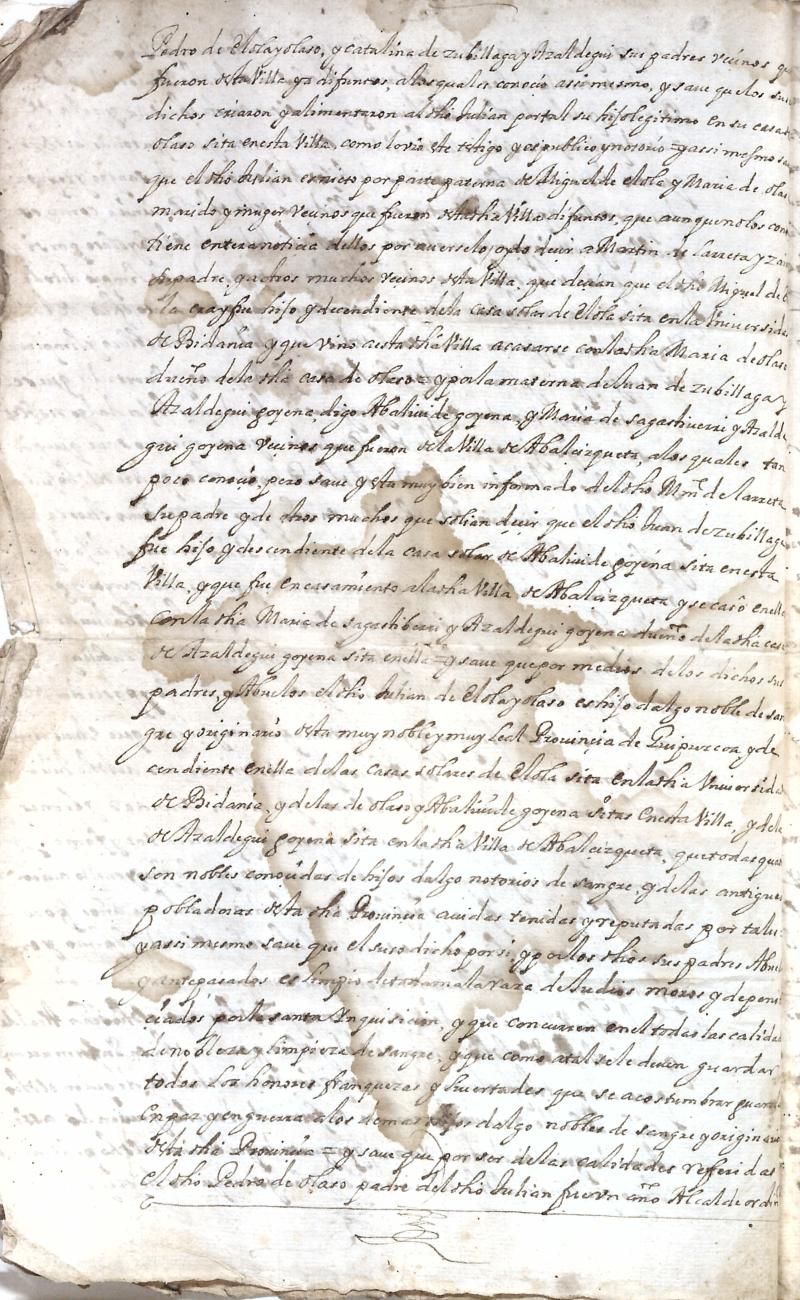 Pedro de Elola y olaso, y catalina de zubillaga y Azaldegui sus padres vecinos q
fueron desta Villa ya difuntos, alos quales conocio assi mesmo, y save que los sus
dichos criaron y alimentaron al dho Julian por tal su hijo legitimo en su casa de
olaso sita en esta Villa, como lo vio este testigo y es publico y notorio = y assi mesmo sa
que el dho Julian es nieto por parte paterna de Miguel de elola y Maria de olas
marido y muger Vecinos que fueron desta dha Villa difuntos, que aunque no los cono
tiene entera noticia dellos por averselo oydo decir a Martin de larreta y
su padre, y a otros muchos vecinos desta Villa, que decian que el dho Miguel de E
la era y fue hijo y decendiente dela casa solar de Elola sita en la Universida
de Bidania y que vino a esta dha Villa a casarse con la dha Maria de olaso
dueño dela dha casa de olaso = y por la materna de Juan de zubillaga y
Azaldegui goyena, digo Abaliuide goyena, y Maria de sagastiverri y Azalde
gui goyena vecinos que fueron dela Villa de Abalcizqueta, alos quales tan
poco conocio, pero save y esta muy bien informado del dho Mrn de larreta
su padre y de otros muchos que solian decir que el dho Juan de zubillaga
fue hijo y descendiente dela casa solar de Abaliuide goyena sita en esta
Villa, y que fue en casamiento ala dha Villa de Abalcizqueta y se casó en ella
con la dha Maria de sagastiberri y Azaldegui goyena dueño dela dha casa
de Azaldegui goyena sita en ella = y save que por medios delos dichos sus
padres, y Abuelos el dho Julian de Elola y olaso es hijo dalgo noble de san
gre y originario desta muy noble y muy Leal Provincia de Guipuzcoa y de
cendiente en ella delas casas solares de Elola sita en la dha Universida
de Bidania, y delas de olaso y Abaliuide goyena sitas en esta Villa, y dela
de Azaldegui goyena sita en la dha Villa de Abalcizqueta, que todas qua
son nobles conocidas de hijos dalgo notorios de sangre, y delas antiguas
pobladoras desta dha Provincia avidas tenidas y reputadas por tales
y assi mesmo save que el suso dicho por si, y por los dhos sus padres Abue
y antepasados es limpio de toda mala raza de Judios moros y de peni
ciados por la santa Ynquisicion, y que concurren en el todas las calida
de nobleza y limpieza de sangre, y que como a tal se le deven guardar
todos los honores franquezas y livertades que se acostumbrar guarda
en paz y en guerra alos demas hijos dalgo nobles de sangre y originario
desta dha Provincia = y save que por ser delas calidades referidas
el dho Pedro de olaso padre del dho Julian fue en un año Alcalde ordin